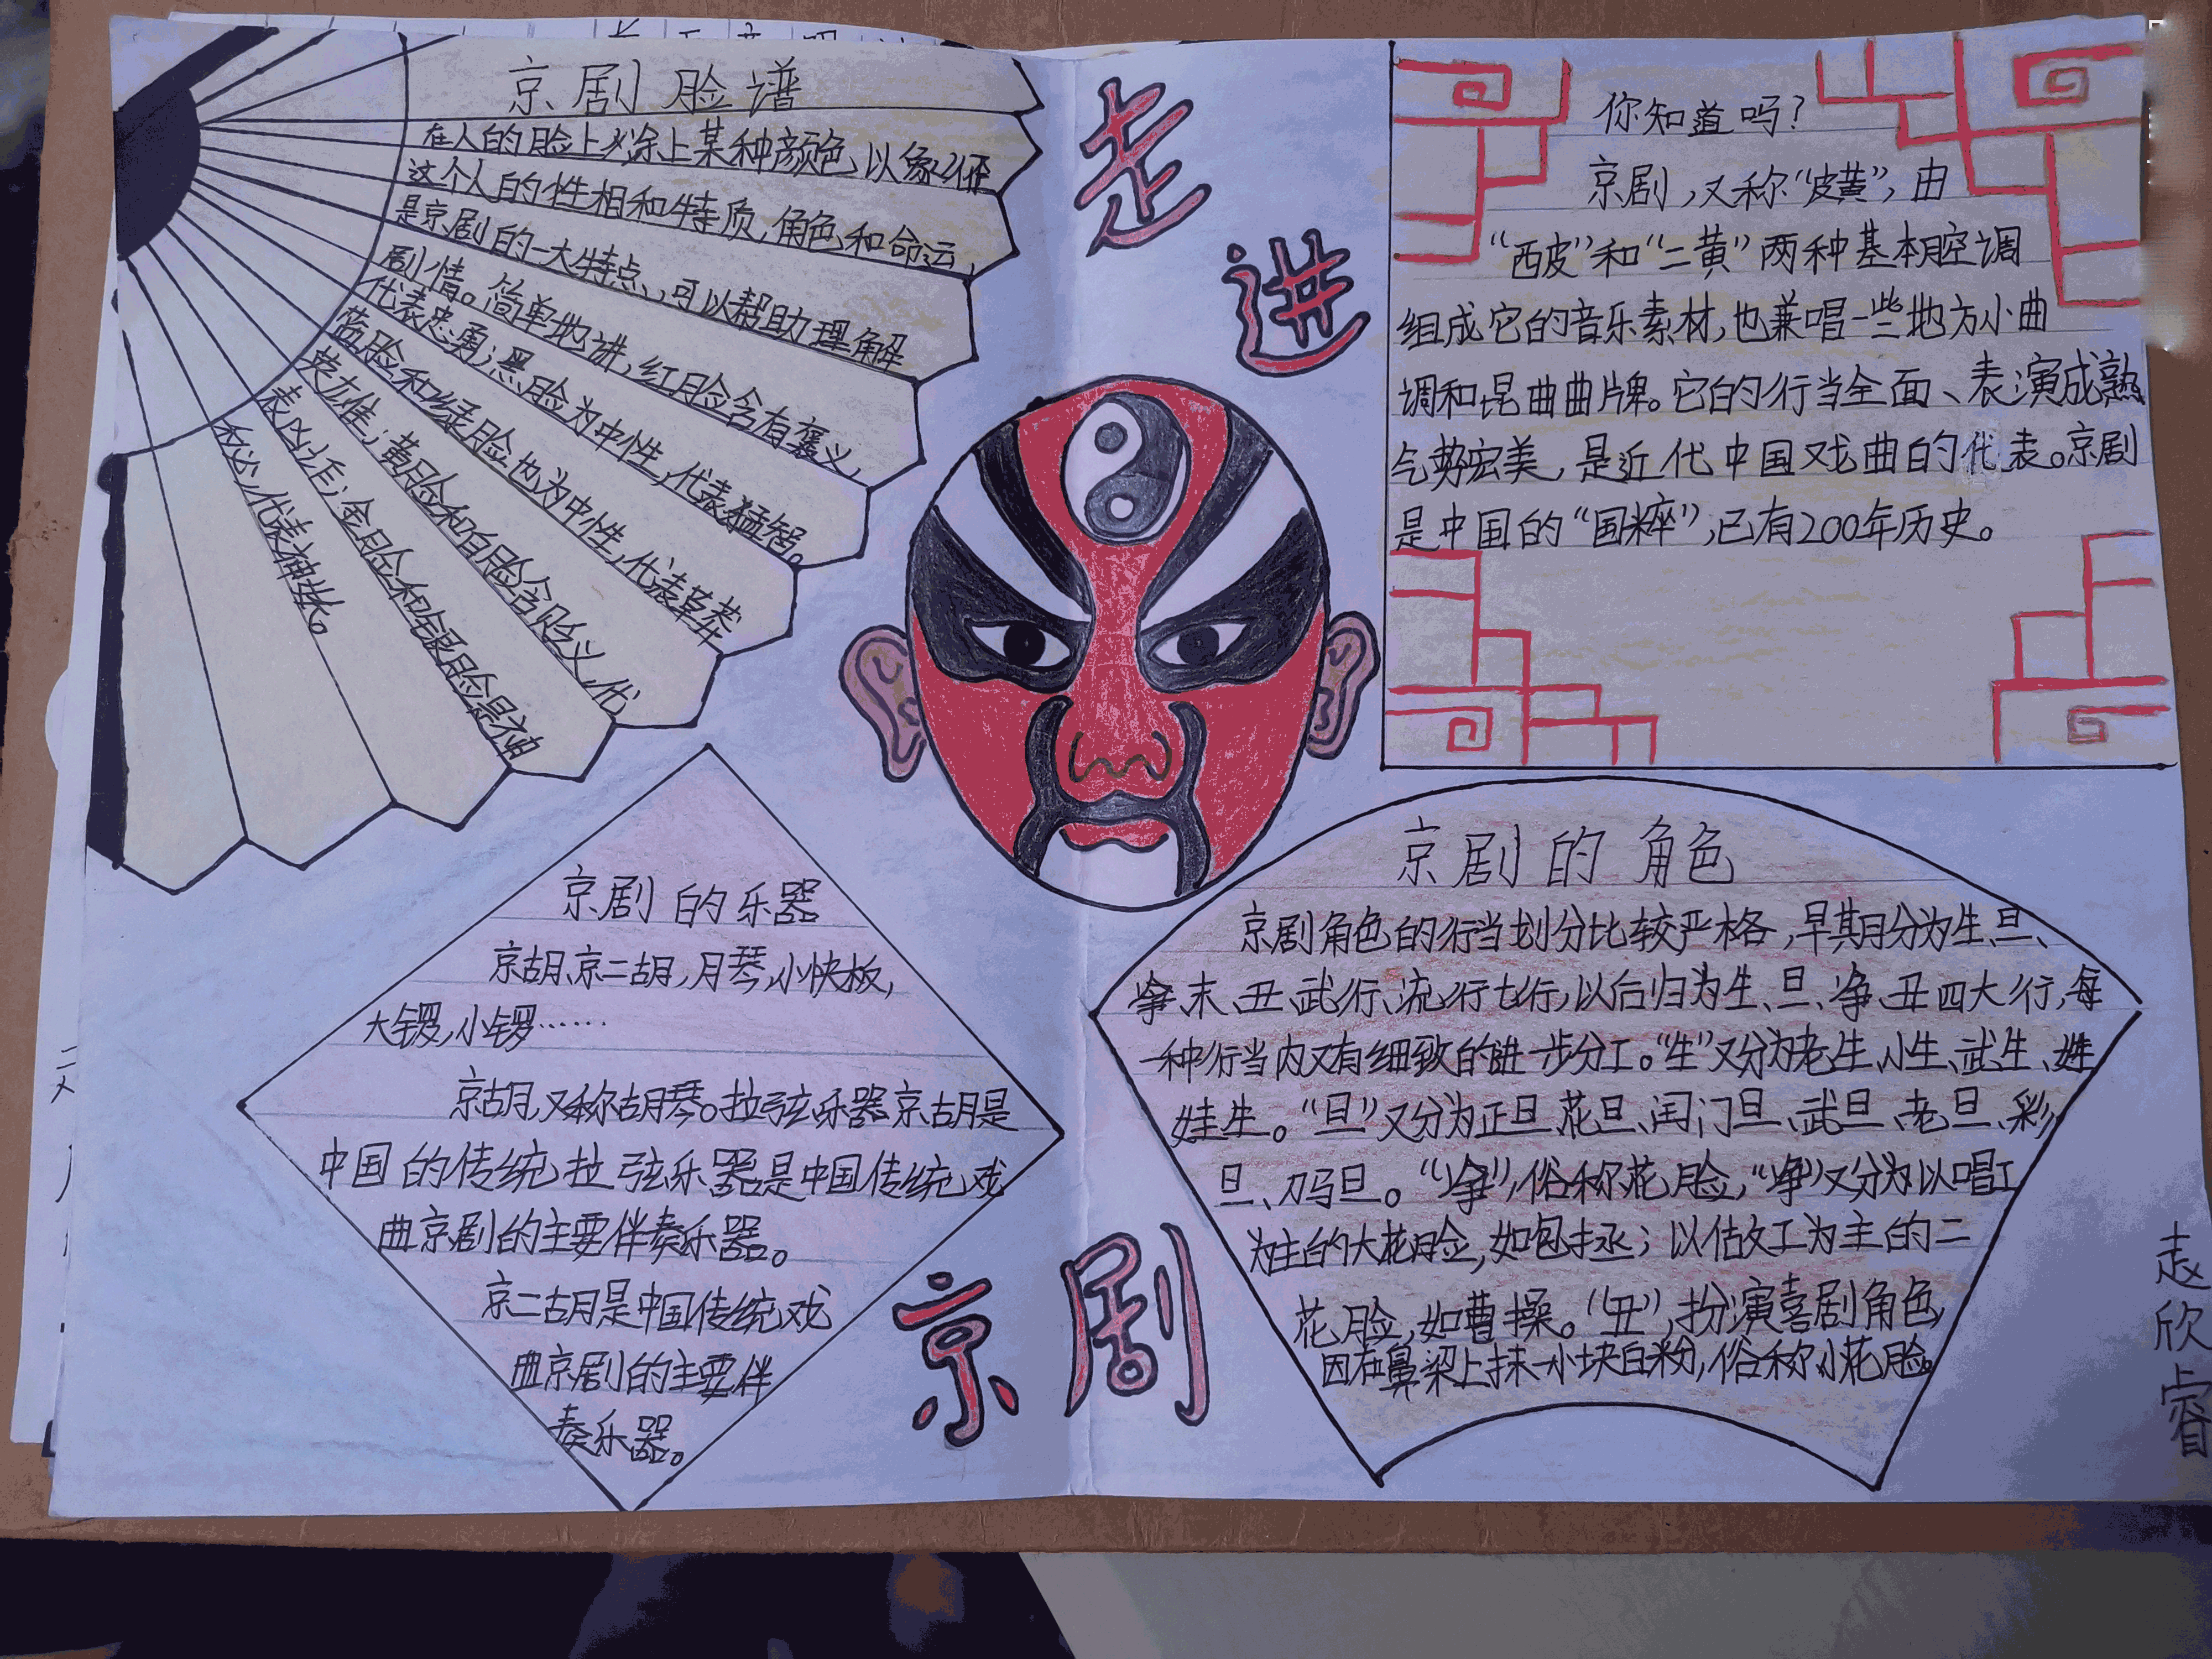 走进
京剧
京剧脸谱
在人的脸上涂上某种颜色以象征
这个人的性相和特质,角色和命运,
是京剧的一大特点,可以帮助理解
剧情。简单地讲,红脸含有褒义,
代表忠勇;黑脸为中性,代表猛智。
蓝脸和绿脸也为中性,代表草莽
英雄;黄脸和白脸含贬义,代
表凶诈;金脸和银脸是神
秘,代表神妖。
你知道吗?
京剧,又称“皮黄”,由
“西皮”和“二黄”两种基本腔调
组成它的音乐素材,也兼唱一些地方小曲
调和昆曲曲牌。它的行当全面、表演成熟
气势宏美,是近代中国戏曲的代表。京剧
是中国的“国粹”,已有200年历史。
京剧的乐器
京胡、京二胡,月琴,小快板,
大锣,小锣……
京胡,又称胡琴。拉弦乐器京胡是
中国的传统拉弦乐器是中国传统戏
曲京剧的主要伴奏乐器。
京二胡是中国传统戏
曲京剧的主要伴
奏乐器。
京剧的角色
京剧角色的行当划分比较严格,早期分为生、旦、
净、末、丑、武行、流行七行,以后归为生、旦、净、丑四大行,每
一种行当内又有细致的进一步分工。“生”又分为老生、小生、武生、娃
娃生。“旦”又分为正旦、花旦、闺门旦、武旦、老旦、彩
旦、刀马旦。“净”,俗称花脸,“净”又分为以唱工
为主的大花脸,如包拯;以做工为主的二
花脸,如曹操。“丑”,扮演喜剧角色,
因在鼻梁上抹一小块白粉,俗称小花脸。
赵欣睿